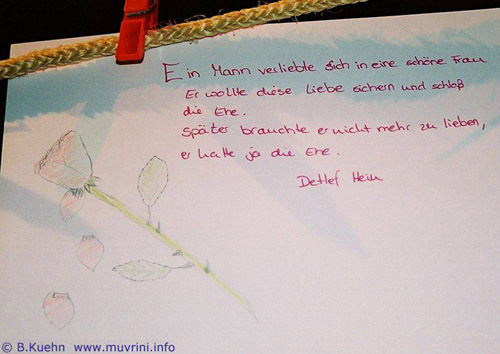 Ein Mann verliebte sich in eine schöne Frau
Er wollte diese Liebe sichern und schloß
die Ehe.
später brauchte er nicht mehr zu lieben,
er hatte ja die Ehe.
Detlef Hein
© B.Kuehn www.muvrini.info